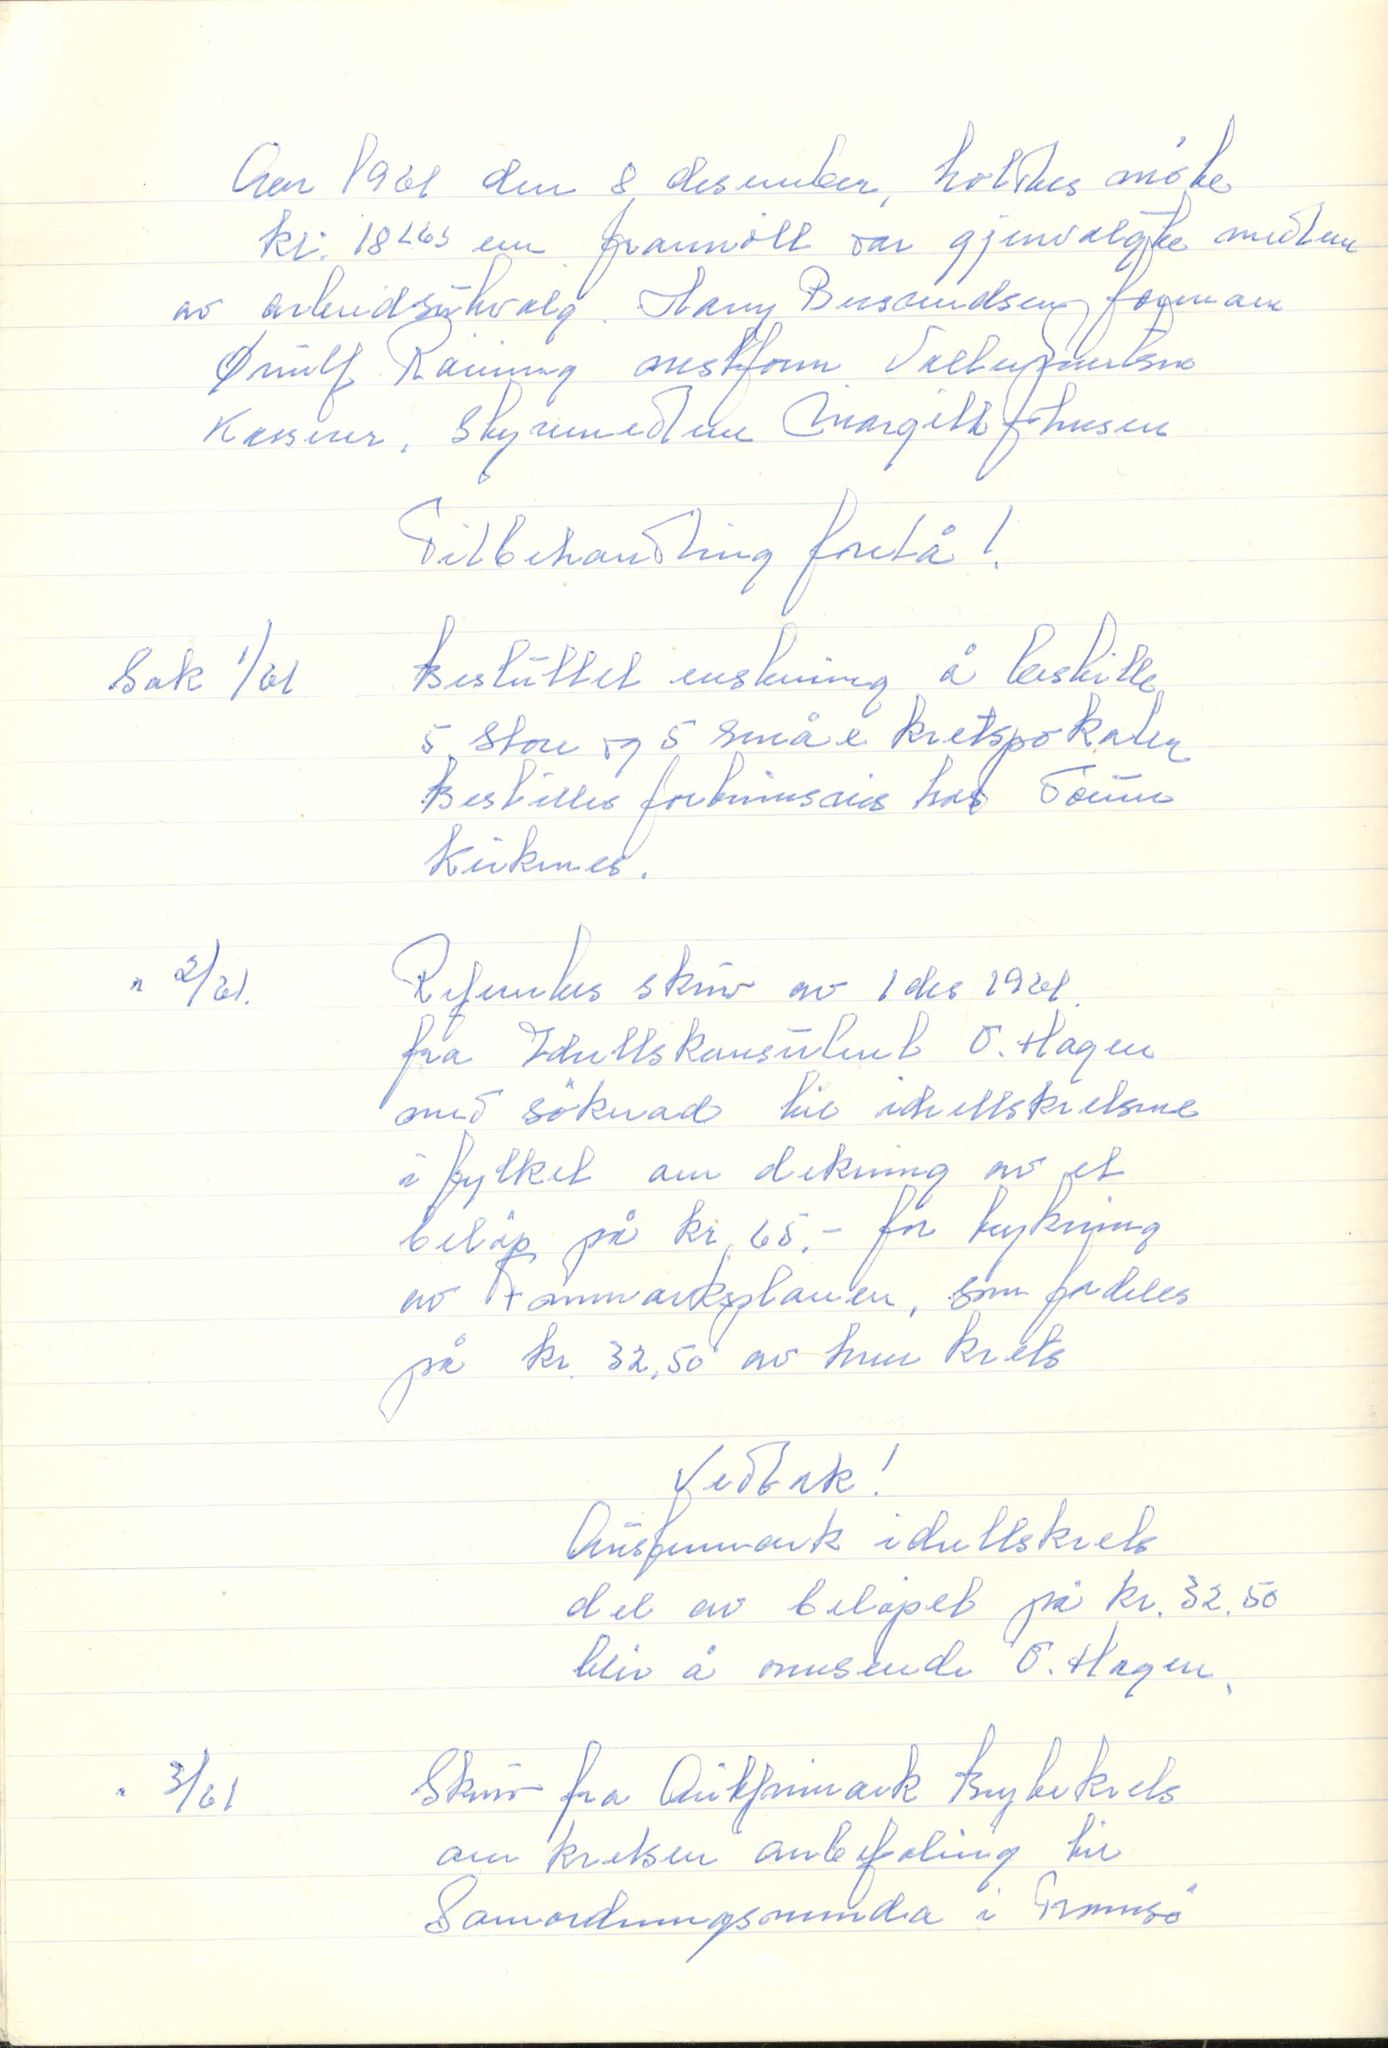 Aar 1961 den 8 desember, holtes möte
kl. 18 en framölt var gjenvalgte medlem
av arbeidsütvalg. Harry Berntsen formann
Ørnülf Räining nestform
Kasserer, Styremedlem Margith Johnsen
Tilbehandling forelå!
Sak 1/61 Beslüttet enskning å beskille
5 store og 5 små e kretspokaler
Bestilles hos
Kirknes.
" 2/61. Referertes skriv av 1 des 1961.
fra Idrettskonsülent O. Hagen
med söknad til idrettskretsene
i fylket om dekning av et
beløp på kr. 65.- for trykning
av Finnmarksplanen, som fordeles
på kr. 32,50 av hver krets
Vedtak!
Aüstfinmark idrettskrets
del av beløpet på kr. 32.50
bliv å O. Hagen.
" 3/61 Skriv fra Aüstfinmark Bryterkrets
om kretsen anbefaling til
Samordnungsnemda i Tromsö